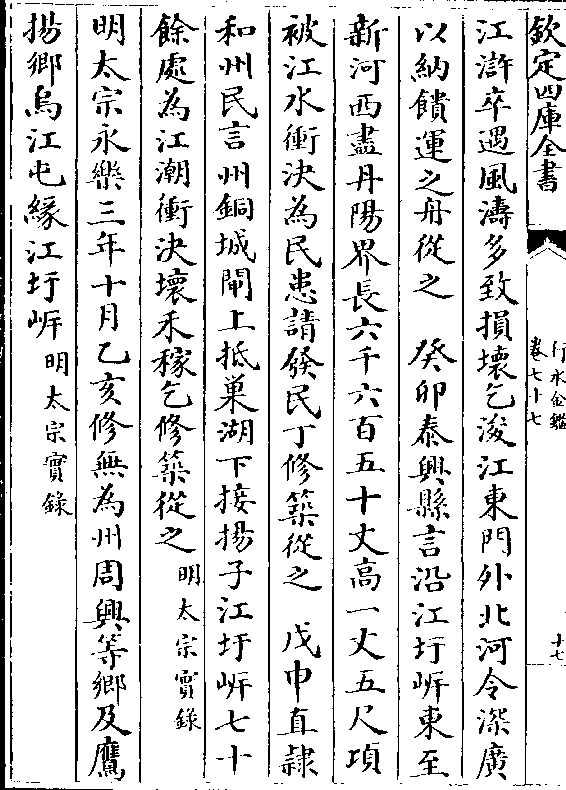 欽定四庫全書
行水金鑑
卷七十七
十七
江滸卒遇風濤多致損壞乞浚江東門外北河令深廣
以納饋運之舟從之　癸卯泰興縣言沿江圩岸東至
新河西盡丹陽界長六千六百五十丈高一丈五尺項
被江水衝決為民患請發民丁修築從之　戊申直隷
和州民言州銅城閘上抵巢湖下接揚子江圩岸七十
餘處為江潮衝決壞禾稼乞修築從之明太宗實錄
明太宗永樂三年十月乙亥修無為州周興等鄉及鷹
揚鄉烏江屯緣江圩岸明太宗實錄